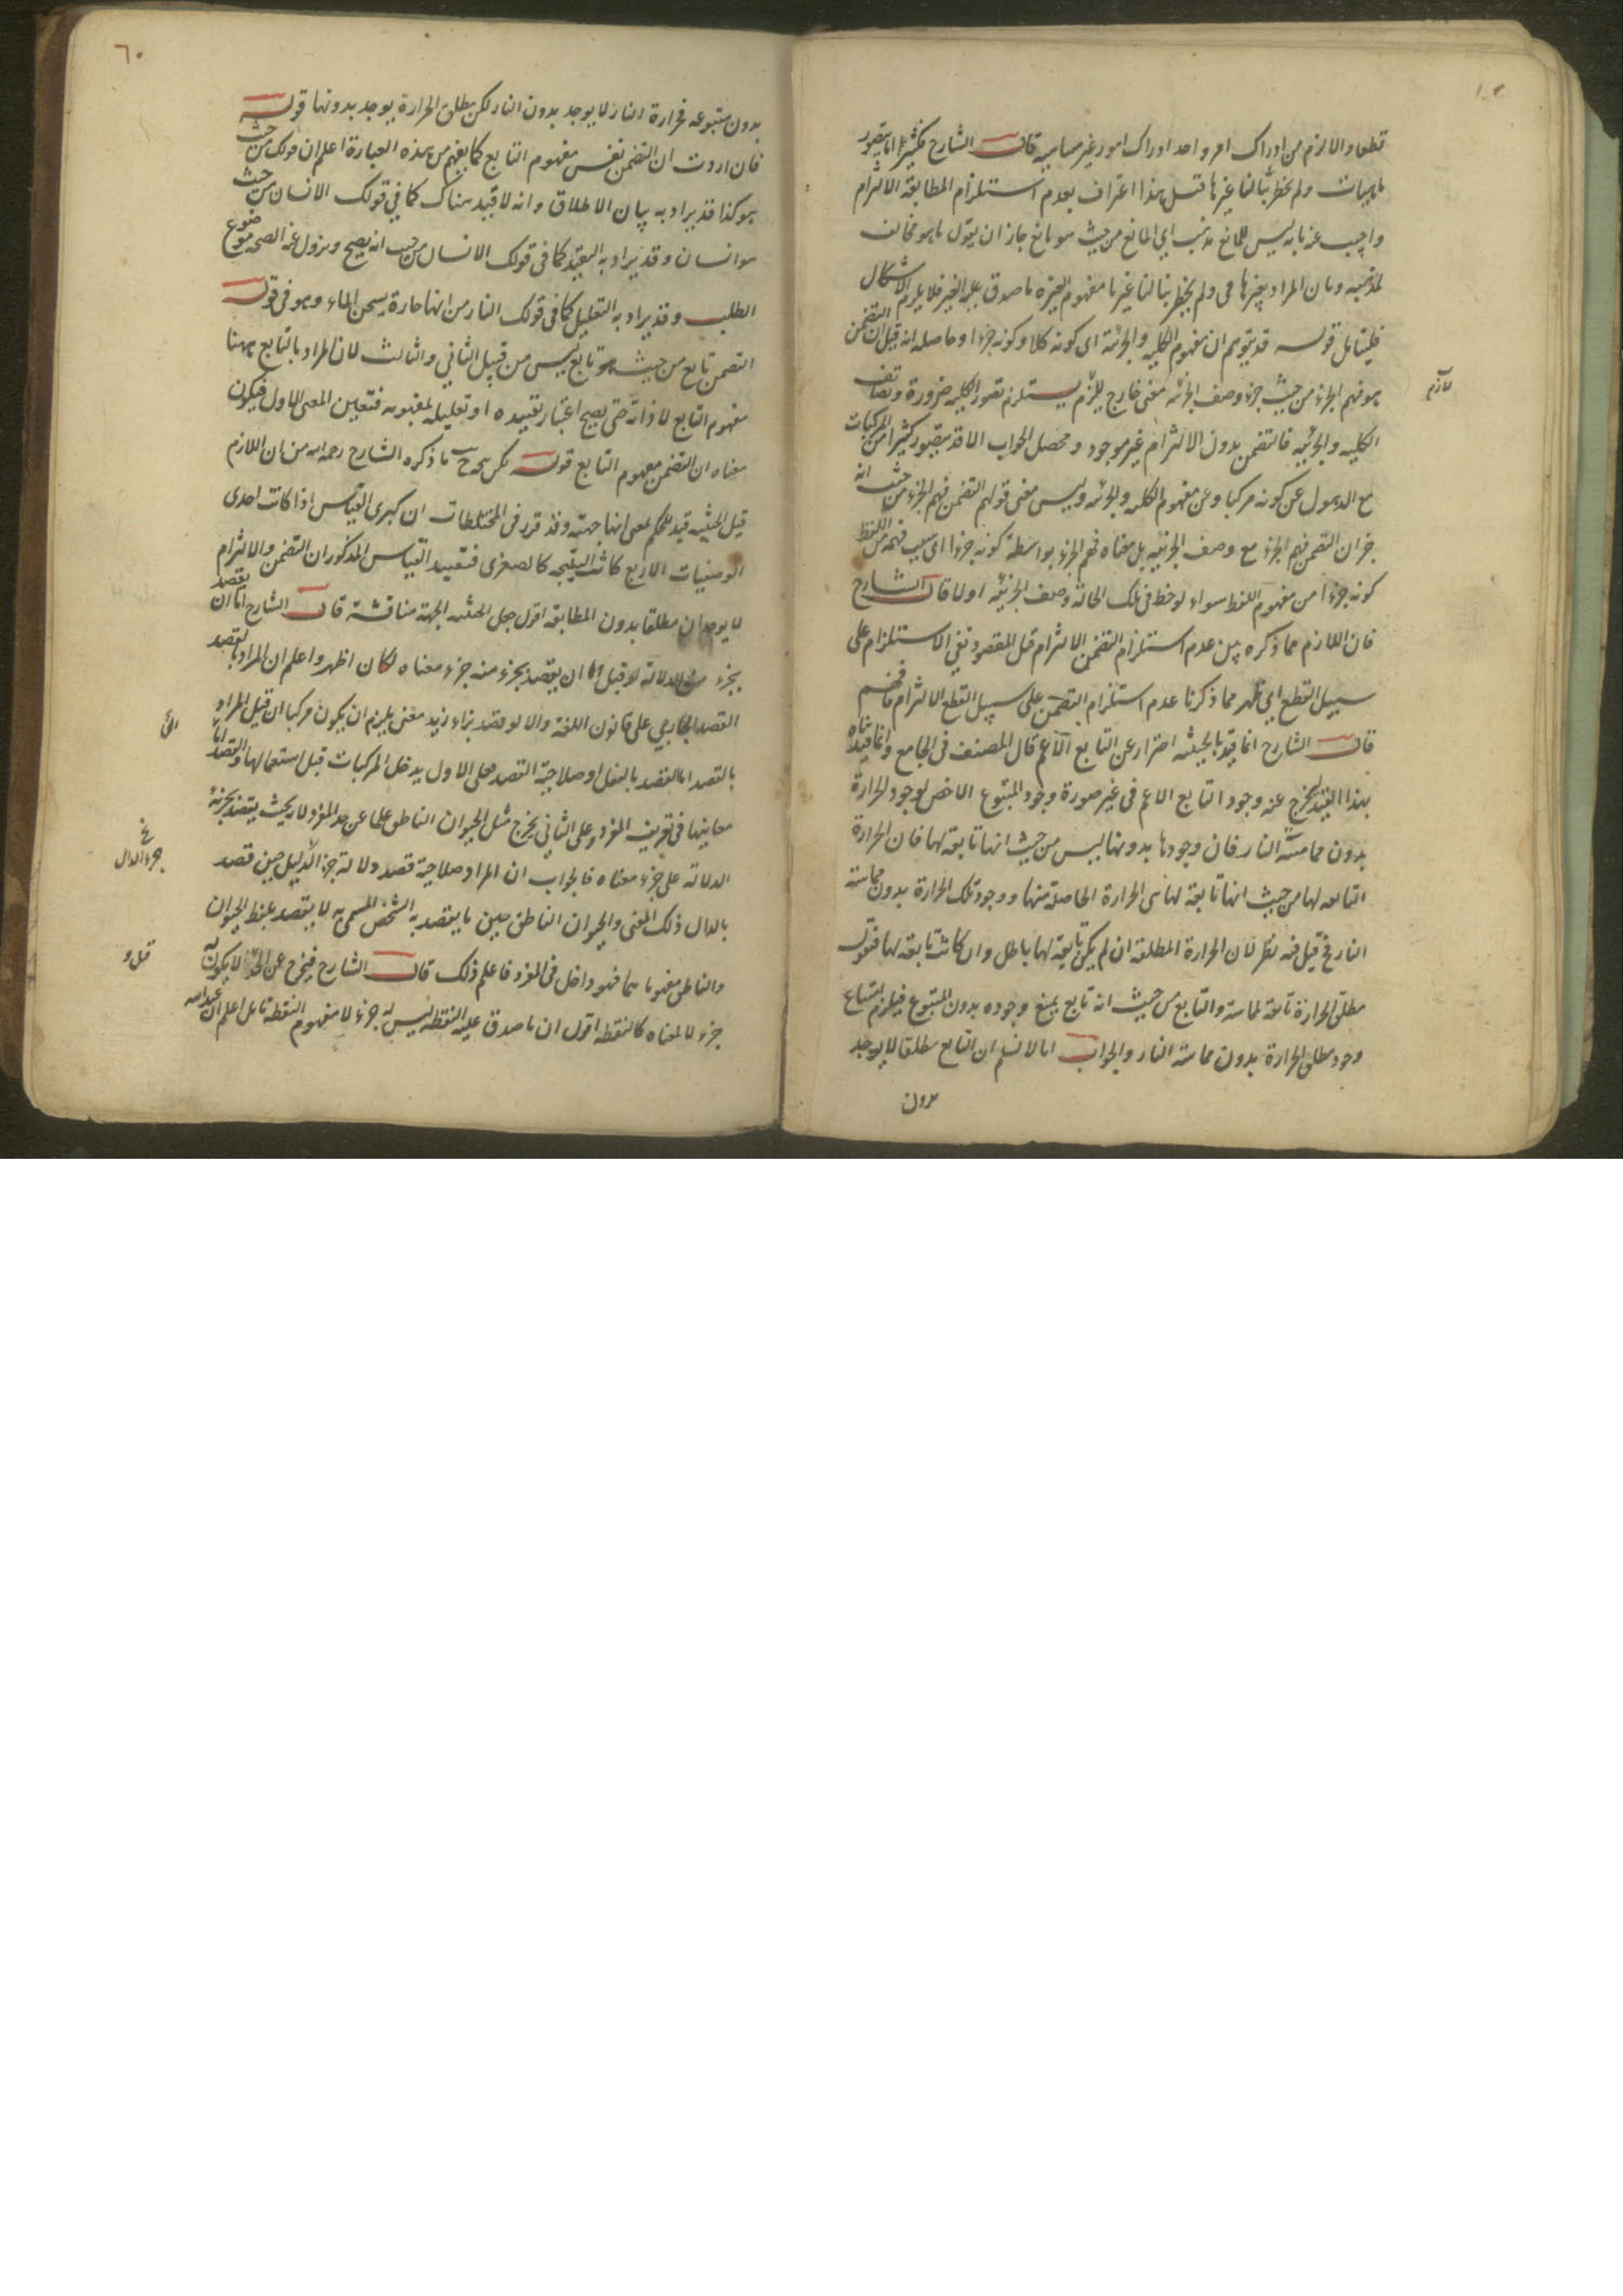 قطعا والالزم من ادراك امر واحد ادراك امور غير متناهية قال الشارح فكثيرا ما نتصور
ماهيات ولم يخطر ببالنا غيرها قيل هذا اعتراف بعدم استلزام المطابقة الالتزام
واجيب عنه بانه ليس للمانع مذهب اي المانع من حيث هو مانع جاز ان يقول ما هو مخالف
لمذهبه وبان المراد بغيرها في ولم يخطر ببالنا غيرها مفهوم الغير لا ما صدق عليه الغير فلا يلزم الاشكال
فليتأمل قوله قد يتوهم ان مفهوم الكلية والجزئية اي كونه كلا وكونه جزءا وحاصله انه قيل ان التضمن
هو فهم الجزء من حيث جزء وصف الجزئية معنى خارج يلزم يستلزم تصور الكلية ضرورة وتضايف
لازم
الكلية والجزئية فالتضمن بدون الالتزام غير موجود ومحصل الجواب انا قد نتصور كثيرا من المركبات
مع الذهول عن كونه مركبا وعن مفهوم الكلية والجزئية وليس معنى قولهم التضمن فهم الجزء من حيث انه
جزء ان التضمن فهم الجزء مع وصف الجزئية بل معناه فهم الجزء بواسطة كونه جزءا اي بسبب فهمه من اللفظ
كونه جزءا من مفهوم اللفظ سواء لوحظ في تلك الحالة وصف الجزئية او لا قال الشارح
فان اللازم مما ذكره تبين عدم استلزام التضمن الالتزام قيل المقصود نفي الاستلزام على
سبيل القطع اي ظهر مما ذكرنا عدم استلزام التضمن على سبيل القطع الالتزام فافهم
قال الشارح انما قيد بالحيثية احترازا عن التابع الاعم قال المصنف في الجامع وانما قيدناه
بهذا القيد ليخرج عنه وجود التابع الاعم في غير صورة وجود المتبوع الاخص لوجود الحرارة
بدون مماسة النار فان وجودها بدونها ليس من حيث انها تابعة لها فان الحرارة
التابعة لها من حيث انها تابعة لها هي الحرارة الحاصلة منها ووجود تلك الحرارة بدون مماسته
النار مح قيل فيه نظر لان الحرارة المطلقة ان لم يكن تابعة لها باطل وان كانت تابعة لها فنقول
مطلق الحرارة تابعة لمماسة والتابع من حيث انه تابع يمتنع وجوده بدون المتبوع فيلزم امتناع
وجود مطلق الحرارة بدون مماسة النار والجواب انا لا نسلم ان التابع مطلقا لا يوجد
بدون
٦٠
بدون متبوعه فحرارة النار لا يوجد بدون النار لكن مطلق الحرارة يوجد بدونها قوله
فان اردت ان التضمن نفس مفهوم التابع كما يفهم من هذه العبارة اعلم ان قولك من حيث
هو كذا قد يراد به بيان الاطلاق وانه لا قيد هناك كما في قولك الانسان من حيث
هو انسان وقد يراد به التقييد كما في قولك الانسان من حيث انه يصح ويزول عنه الصحة موضوع
الطب وقد يراد به التعليل كما في قولك النار من انها حارة يسخن الماء وهو في قوله
التضمن تابع من حيث هو تابع ليس من قبيل الثاني والثالث لان المراد بالتابع ههنا
مفهوم التابع لا ذاته حتى يصح اعتبار تقييده او تعليله بمفهومه فتعين المعنى الاول فيكون
معناه ان التضمن مفهوم التابع قوله لكن صح ح ما ذكره الشارح رحمه الله من ان اللازم
قيل الحيثية قيد للحكم بمعنى انها جهته وقد قرر في المختلطات ان كبرى القياس اذا كانت احدى
الوصفيات الاربع كانت النتيجة كالصغرى فتقييد القياس المذكور ان التضمن والالتزام
لا يوجدان مطلقا بدون المطابقة اقول جعل الحيثية الجهة مناقشة قال الشارح اما ان يقصد
بجزء من الدلالة لو قيل اما ان يقصد بجزء منه جزء معناه لكان اظهر واعلم ان المراد بالقصد
القصد الجاري على قانون اللغة والا لو قصد بزاء زيد معنى يلزم ان يكون مركبا ان قيل المراد
بالقصد اما القصد بالفعل او صلاحية القصد فعلى الاول يدخل المركبات قبل استعمالها والقصد الى
معانيها في تعريف المفرد وعلى الثاني يخرج مثل الحيوان الناطق علما عن حد المفرد لانه بحيث يقصد بجزئه
الدلالة على جزء معناه فالجواب ان المراد صلاحية قصد دلالة جزء الدليل حين قصد
خ جزء الدال
بالدال ذلك المعنى والحيوان الناطق حين ما يقصد به الشخص المسمى به لا يقصد بلفظ الحيوان
والناطق مفهوماهما فهو داخل في المفرد فاعلم ذلك قال الشارح فيخرج عن الحد ما لا يكون له
جزء لا لمعناه كالنقطة اقول ان ما صدق عليه النقطة ليس له جزء لا مفهوم النقطة تأمل اعلم ان عبد الله